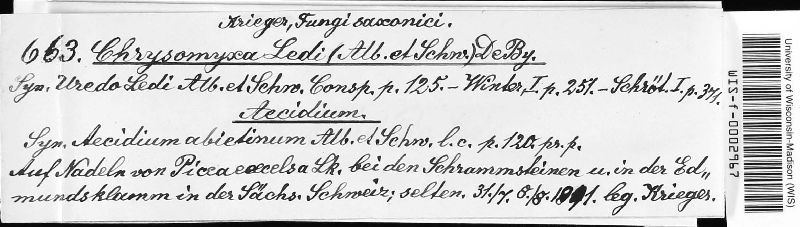 Krieger, Fungi saxonici.
663. Chrysomyxa Ledi (Alb. et Schw.) De By.
Syn. Uredo Ledi Alb. et Schw. Consp. p. 125. – Winter, I. p. 251. – Schröt. I. p. 371.
Aecidium.
Syn. Aecidium abietinum Alb. et Schw. l. c. p. 120. pr. p.
Auf Nadeln von Picea excelsa Lk. bei den Schrammsteinen u. in der Ed„
mundsklamm in der Sächs. Schweiz; selten. 31./7. 8./8. 1891. leg. Krieger.
WIS-f-0002967
University of Wisconsin-Madison (WIS)